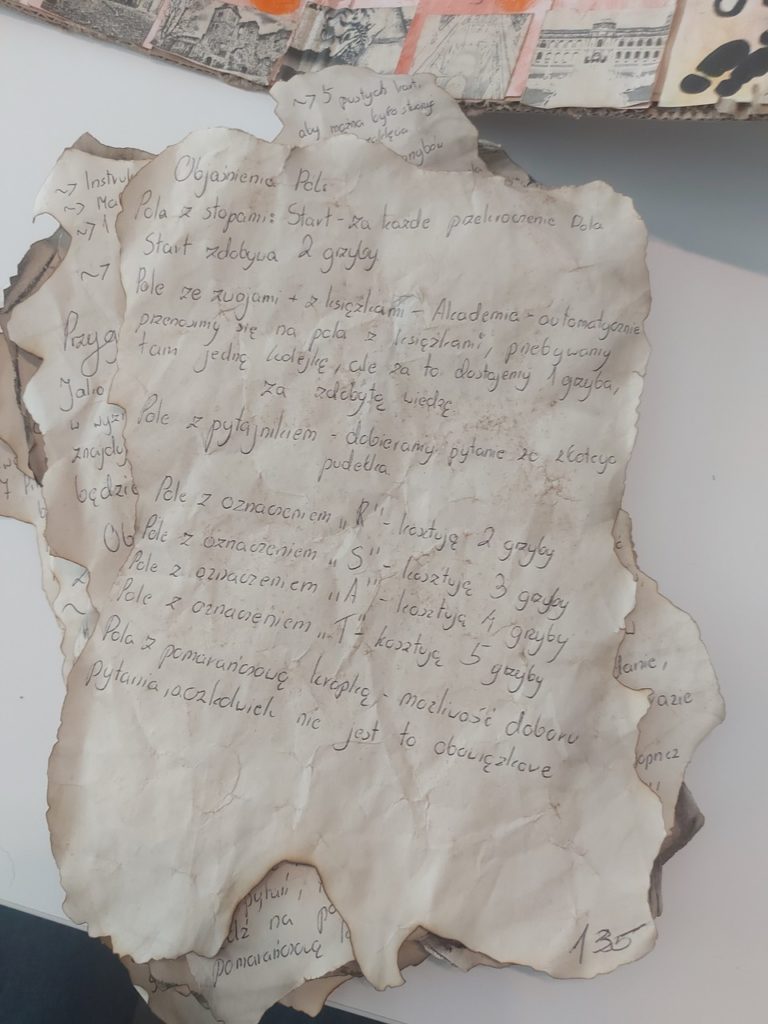 ~7 5 pustych kart,
aby można było stworzyć
zaklęcia
~7 Instruk
~7 Ma
~7 1
~7
Przyg
Jako
w wyzn
znajdy
będzie
Ob
Objaśnienie Pól:
Pola z stopami: Start - za każde przekroczenie Pola
Start zdobywa 2 grzyby
Pole ze zwojami + z książkami - Akademia - automatycznie
przenosimy się na pola z książkami, przebywamy
tam jedną kolejkę, ale za to dostajemy 1 grzyba,
za zdobytą wiedzę.
Pole z pytajnikiem - dobieramy pytanie ze złotego
pudełka.
Pole z oznaczeniem „R" - kosztują 2 grzyby
Pole z oznaczeniem „S" - kosztują 3 grzyby
Pole z oznaczeniem „A" - kosztują 4 grzyby
Pole z oznaczeniem „T" - kosztują 5 grzyby
Pola z pomarańczową kropką - możliwość doboru
pytania, aczkolwiek nie jest to obowiązkowe
danie,
razie
opricz
pytań,
dź na po
pomarańczową k
135